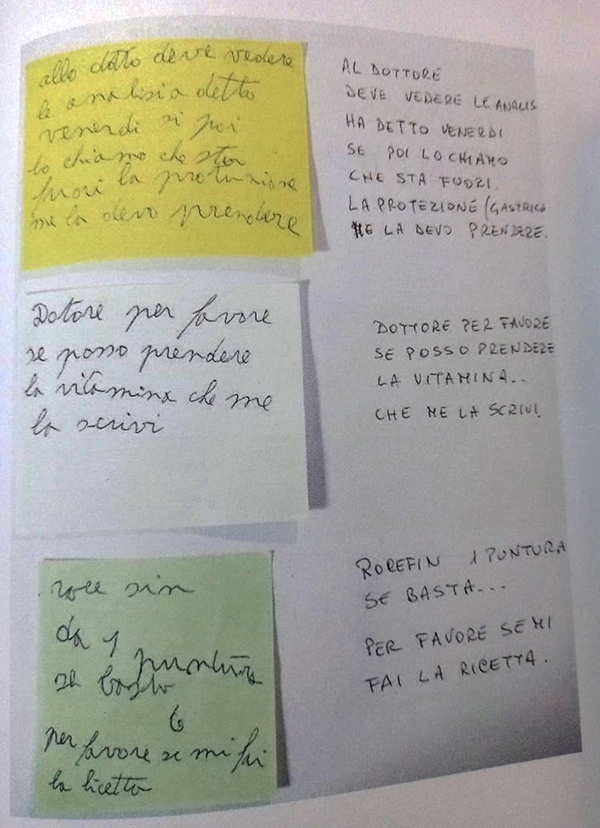 allo dotto deve vedere
le analisia detto
venerdi si poi
lo chiamo che sta
fuori la protunzione
me la devo prendere
AL DOTTORE
DEVE VEDERE LE ANALIS
HA DETTO VENERDI
SE POI LO CHIAMO
CHE STA FUORI.
LA PROTEZIONE (GASTRICA
ME LA DEVO PRENDERE.
Dotore per favore
se posso prendere
la vitamina che me
la scrivi
DOTTORE PER FAVORE
SE POSSO PRENDERE
LA VITAMINA..
CHE ME LA SCRIVI.
roce sin
da 1 puntura
se basta
6
per favore se mi fai
la licetta
ROREFIN 1 PUNTURA
SE BASTA...
PER FAVORE SE MI
FAI LA RICETTA.